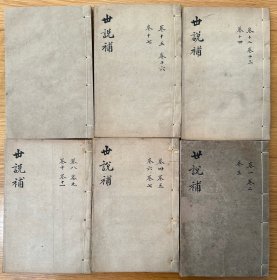 卷十五 卷十六
卷十七
世說補
卷十二 卷十三
卷十四
世說補
卷八 卷九
卷十 卷十一
世說補
卷四 卷五
卷六 卷七
世說補
卷一 卷二
卷三
世說補